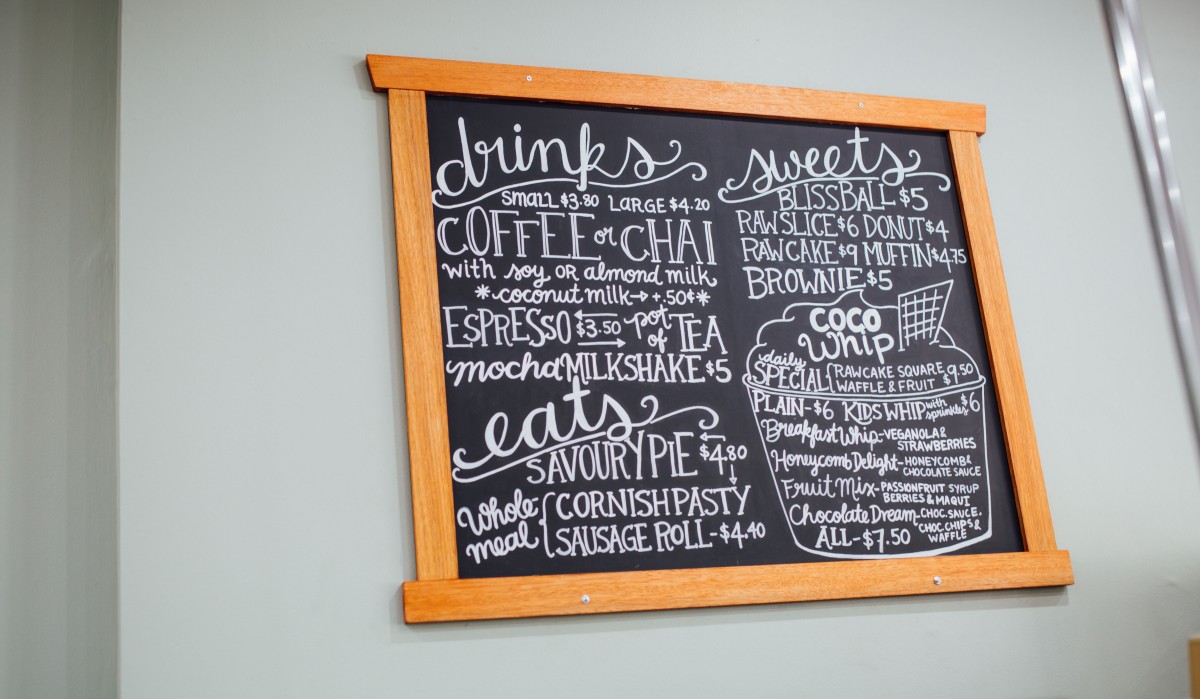 drinks
small $3.80 LARGE $4.20
COFFEE or CHAI
with soy OR almond milk
*coconut milk→ +.50¢*
ESPRESSO ← $3.50 → pot of TEA
mocha MILKSHAKE $5
eats
SAVOURY PIE ← $4.80
Whole meal { CORNISH PASTY ↓
SAUSAGE ROLL - $4.40
sweets
BLISS BALL $5
RAW SLICE $6 DONUT $4
RAW CAKE $9 MUFFIN $4.75
BROWNIE $5
COCO
Whip
daily SPECIAL { RAWCAKE SQUARE
WAFFLE & FRUIT $9.50
PLAIN - $6 KIDS WHIP with sprinkles $6
Breakfast Whip - VEGANOLA &
STRAWBERRIES
Honeycomb Delight - HONEYCOMB &
CHOCOLATE SAUCE
Fruit Mix - PASSIONFRUIT SYRUP
BERRIES & MAQUI
Chocolate Dream - CHOC. SAUCE.
CHOC. CHIPS &
WAFFLE
ALL - $7.50